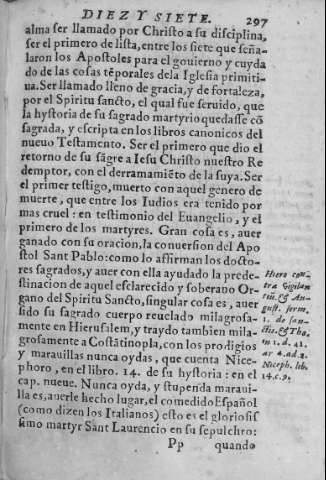 DIEZ Y SIETE. 297
alma ser llamado por Christo a su disciplina,
ser el primero de lista, entre los siete que seña-
laron los Apostoles para el gouierno y cuyda
do de las cosas tẽporales dela Iglesia primiti-
ua. Ser llamado lleno de gracia, y de fortaleza,
por el Spiritu sancto, el qual fue seruido, que
la hystoria de su sagrado martyrio quedasse cõ
sagrada, y escripta en los libros canonicos del
nueuo Testamento. Ser el primero que dio el
retorno de su sãgre a Iesu Christo nuestro Re
demptor, con el derramamiẽto de la suya. Ser
el primer testigo, muerto con aquel genero de
muerte, que entre los Iudios era tenido por
mas cruel: en testimonio del Euangelio, y el
primero de los martyres. Gran cosa es, auer
ganado con su oracion, la conuersion del Apo
stol Sant Pablo: como lo affirman los docto-
res sagrados, y auer con ella ayudado la prede-
stinacion de aquel esclarecido y soberano Or-
gano del Spiritu Sancto, singular cosa es, auer
sido su sagrado cuerpo reuelado milagrosa-
mente en Hierusalem, y traydo tambien mila-
grosamente a Cõstãtinopla, con los prodigios
y marauillas nunca oydas, que cuenta Nice-
phoro, en el libro. 14. de su hystoria: en el
cap. nueue. Nunca oyda, y stupenda maraui-
lla es, auerle hecho lugar, el comedido Español
(como dizen los Italianos) esto es el gloriosis
simo martyr Sant Laurencio en su sepulchro:
Pp quando
Hiero con-
tra Gigilan
tiũ. & Au-
gust. ferm.
1. de san-
ctis. & Tho.
in 1. d. 41.
ar 4. ad. 2.
Niceph. lib.
14. c. 9.